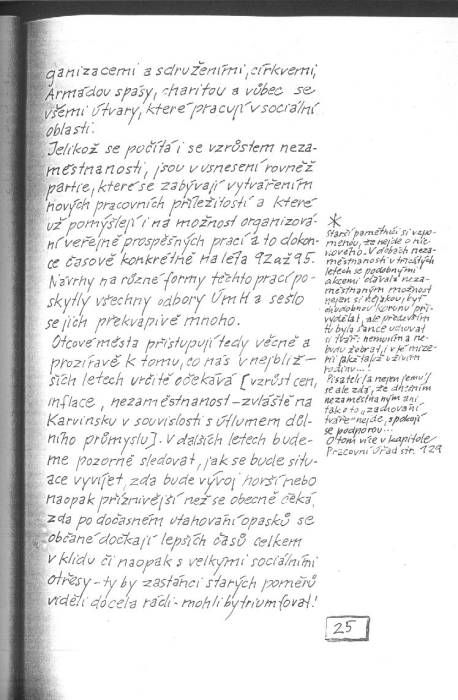 ganizacemi a sdruženími, církvemi,
Armádou spásy, charitou a vůbec se
všemi útvary, které pracují v sociální
oblasti.
Jelikož se počítá i se vzrůstem neza-
městnanosti, jsou v usnesení rovněž
partie, které se zabývají vytvářením
nových pracovních příležitostí a které
už pomýšlejí i na možnost organizová-
ní veřejně prospěšných prací a to dokon-
ce časově konkrétně na léta 92 až 95.
Návrhy na různé formy těchto prací po-
skytly všechny odbory ÚmH a sešlo
se jich překvapivě mnoho.
Otcové města přistupují tedy věcně a
prozíravě k tomu, co nás v nejbliž-
ších letech určitě očekává [vzrůst cen,
inflace, nezaměstnanost - zvláště na
Karvinsku v souvislosti s útlumem důl-
ního průmyslu]. V dalších letech bude-
me pozorně sledovat, jak se bude situ-
ace vyvíjet, zda bude vývoj horší nebo
naopak příznivější než se obecně čeká,
zda po dočasném utahování opasků se
občané dočkají lepších časů celkem
v klidu či naopak s velkými sociálními
otřesy - ty by zastánci starých poměrů
viděli docela rádi - mohli by triumfovat!
*
Starší pamětníci si vzpo-
menou, že nejde o nic
nového. V dobách neza-
městnanosti v třicátých
letech se podobnými
akcemi dávala neza-
městnaným možnost
nejen si nějakou, byť
důvodnou korunu při-
vydělat, ale především
tu byla šance uchovat
si tvář: nemusím a ne-
budu žebrat, i v té mize-
rii jakž takž uživím
rodinu...!
Pisateli /a nejen jemu/
se ale zdá, že dnešním
nezaměstnaným ani
tak o to „zachování
tváře" nejde, spokojí
se podporou...
O tom více v kapitole
Pracovní úřad str. 129
25